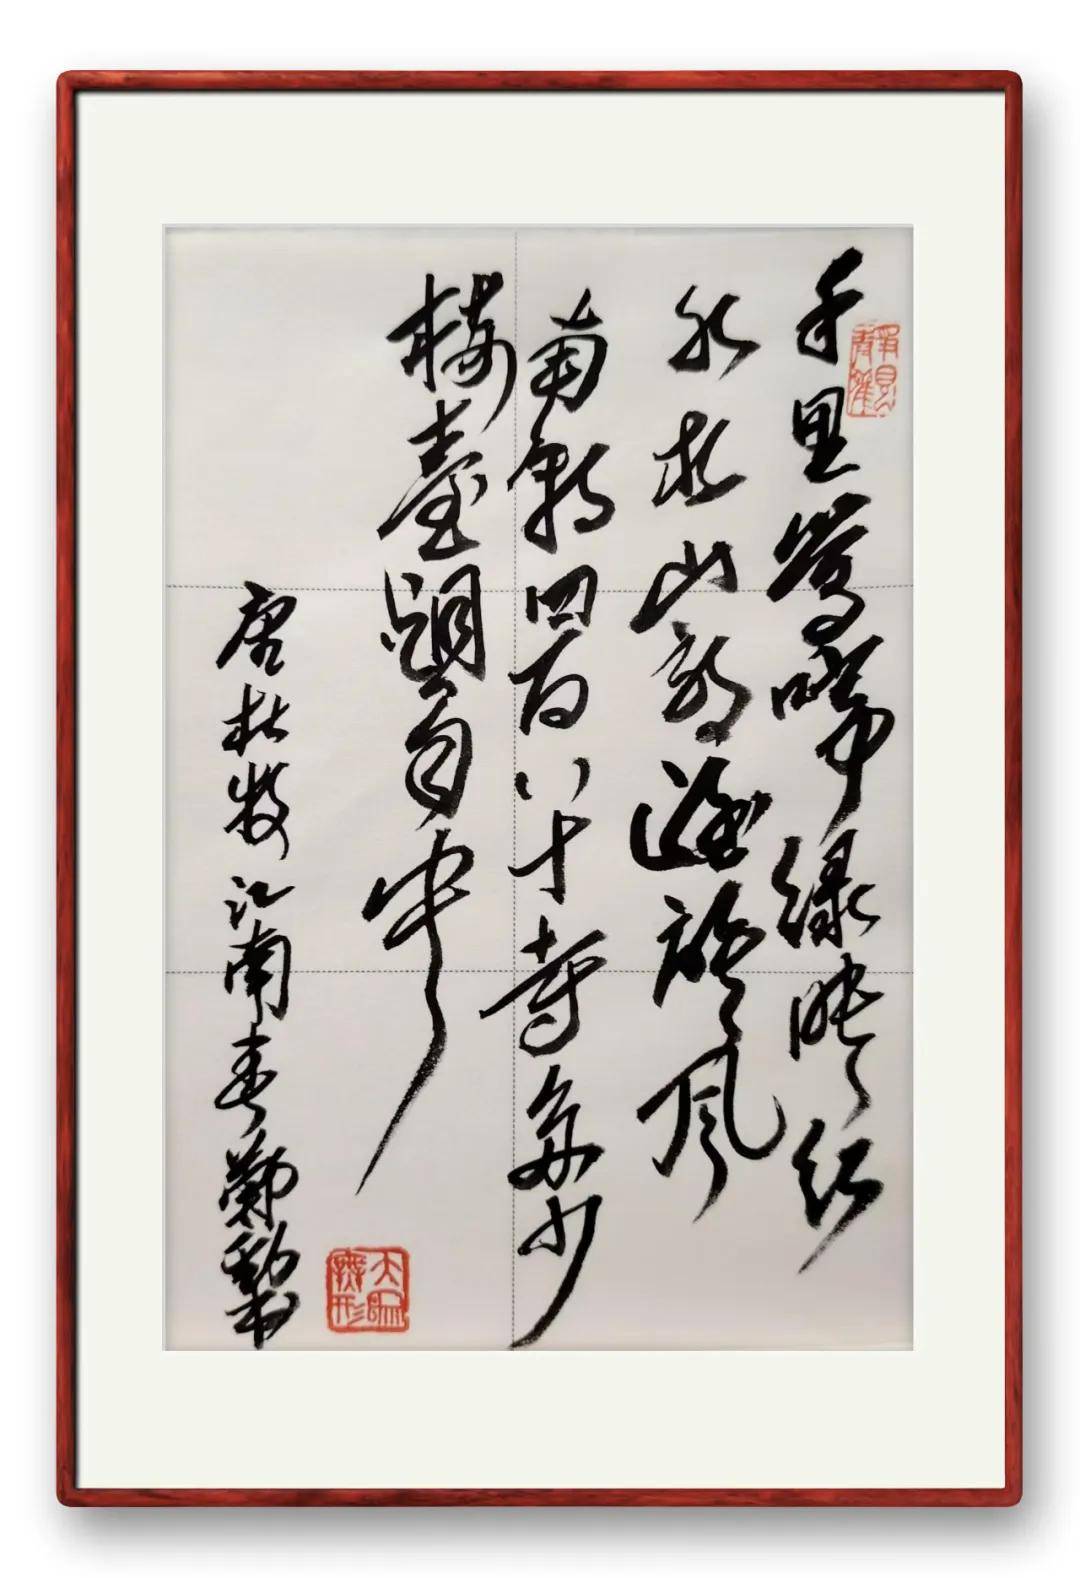 千里鶯啼绿映红
水村山郭酒旗风
南朝四百八十寺多少
楼臺烟雨中
唐杜牧江南春鄭書
大象無形